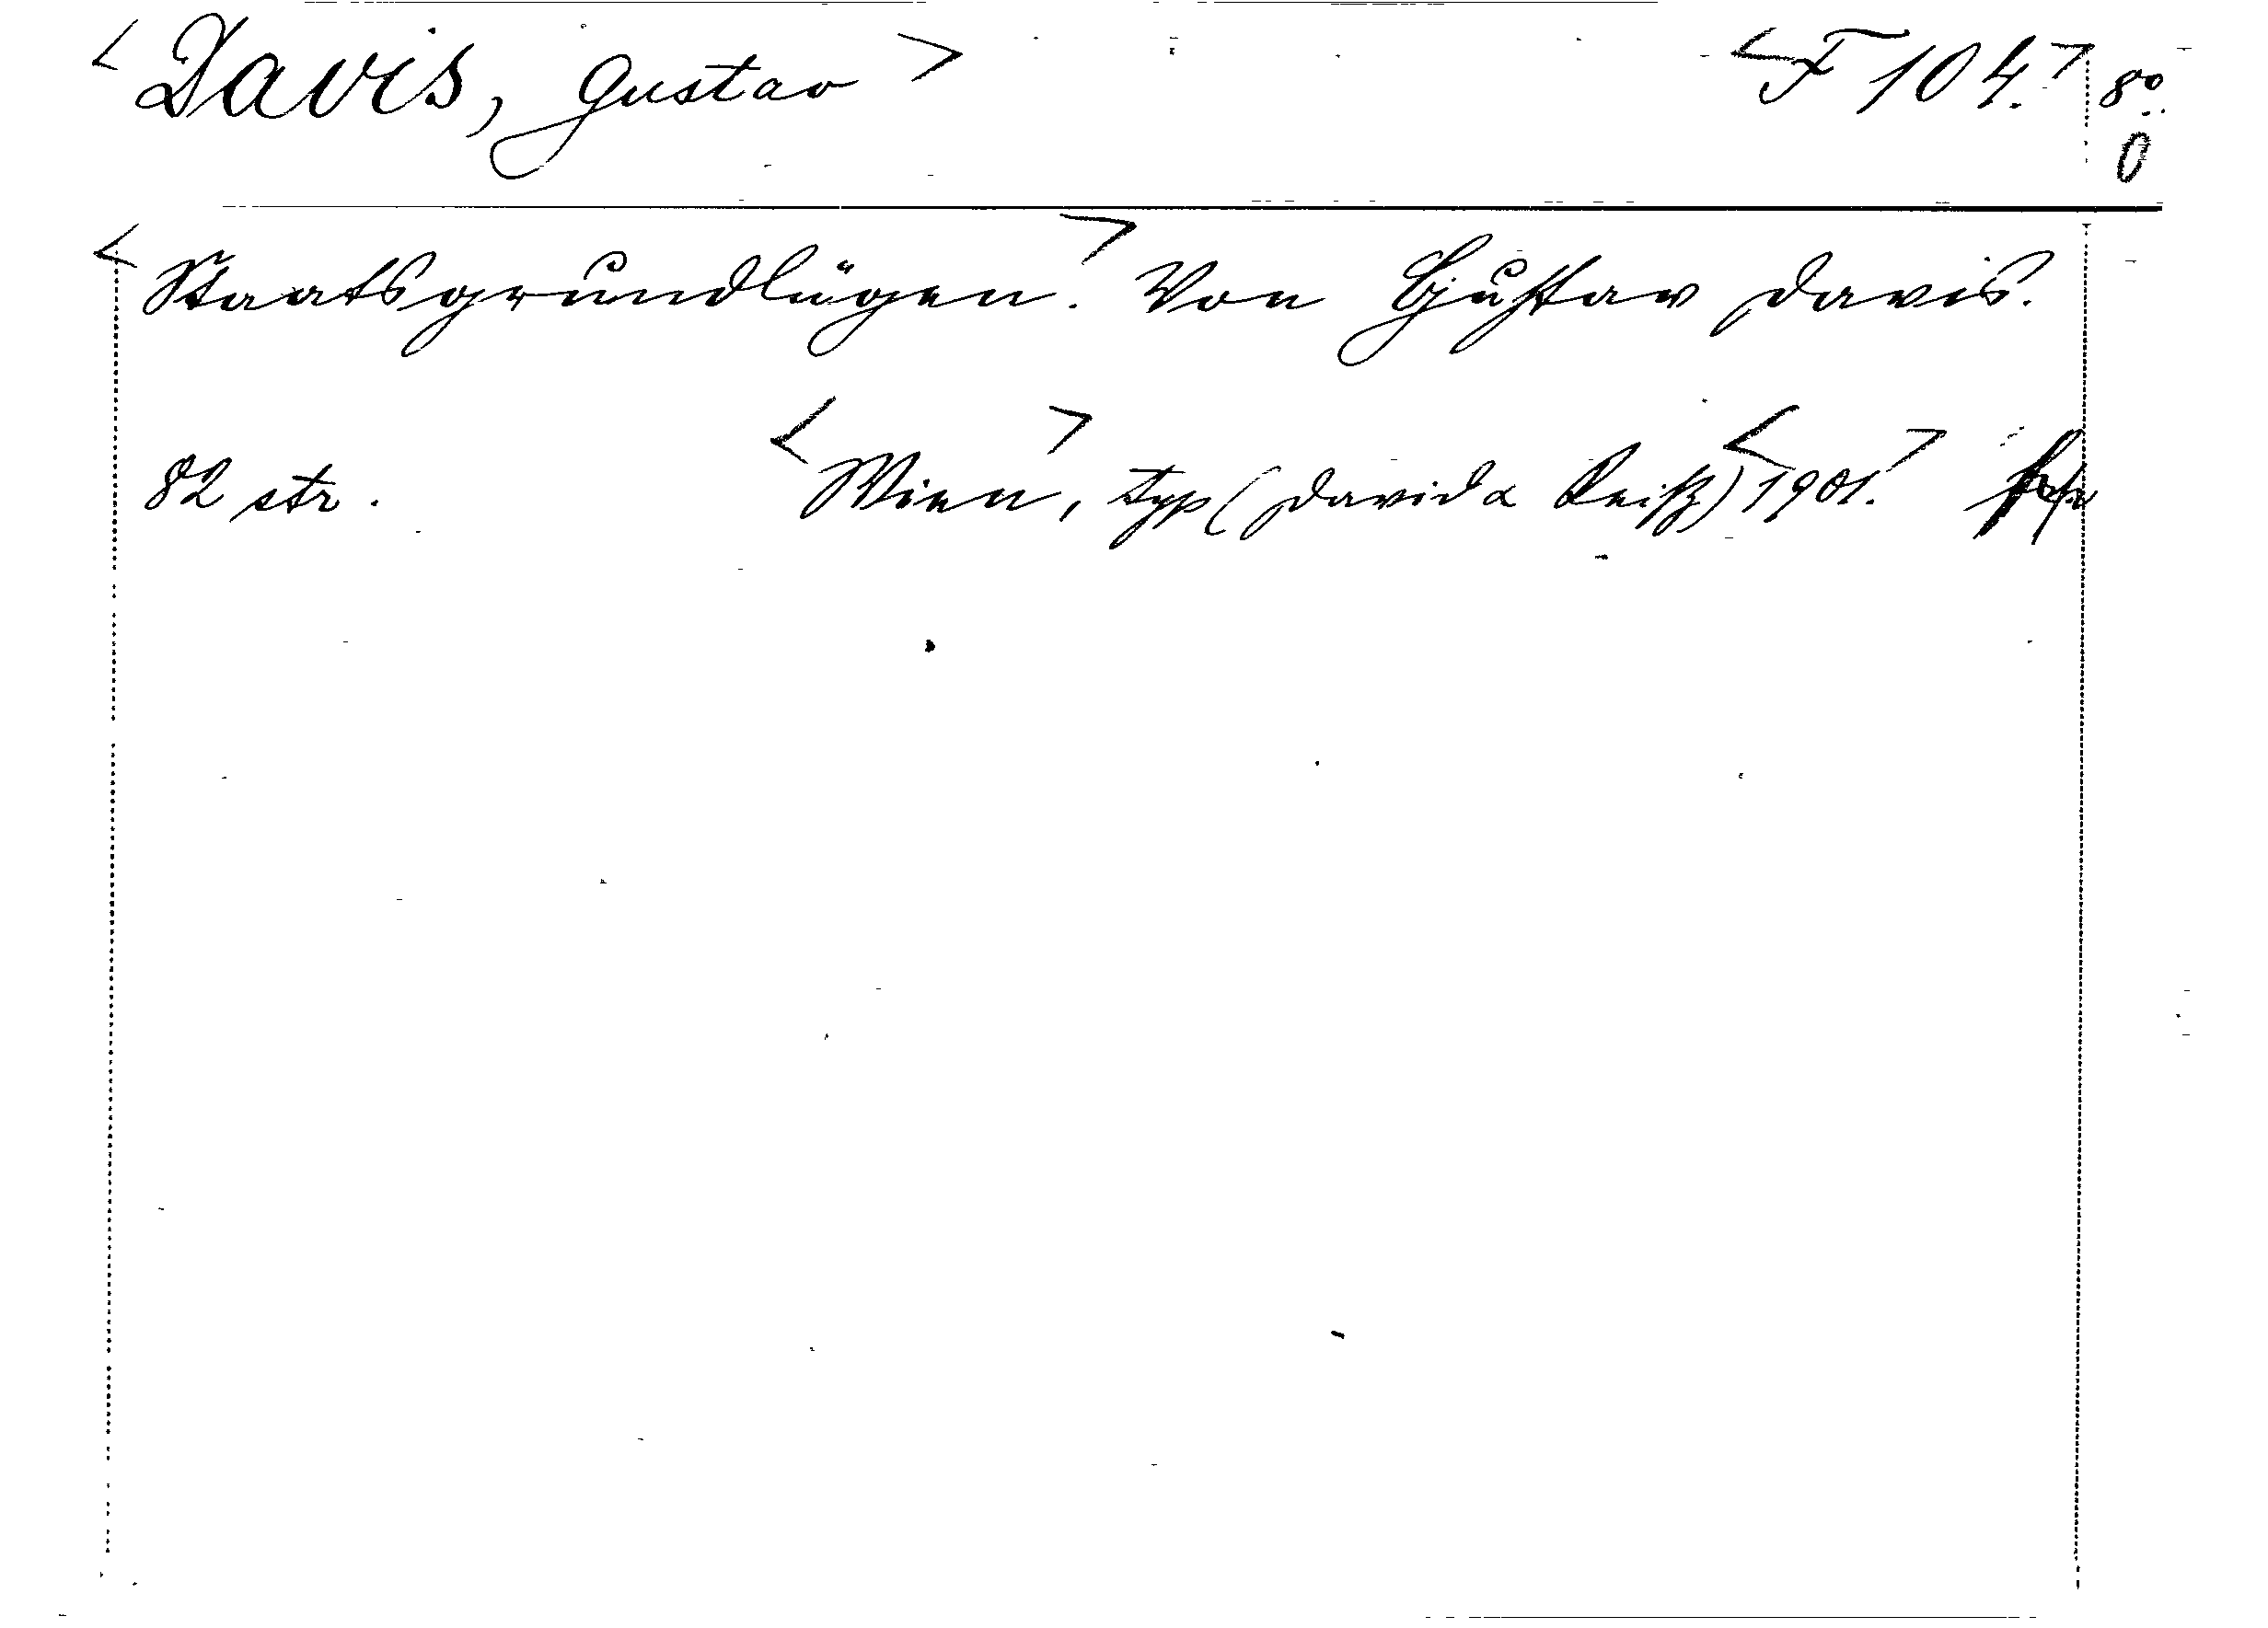 <Davis, Gustav> <F 104.> 8º.
0
<Staatsgrundlügen.> Von Gustav Davis.
82 str. <Wien>, typ (David & Keiß) <1901.>